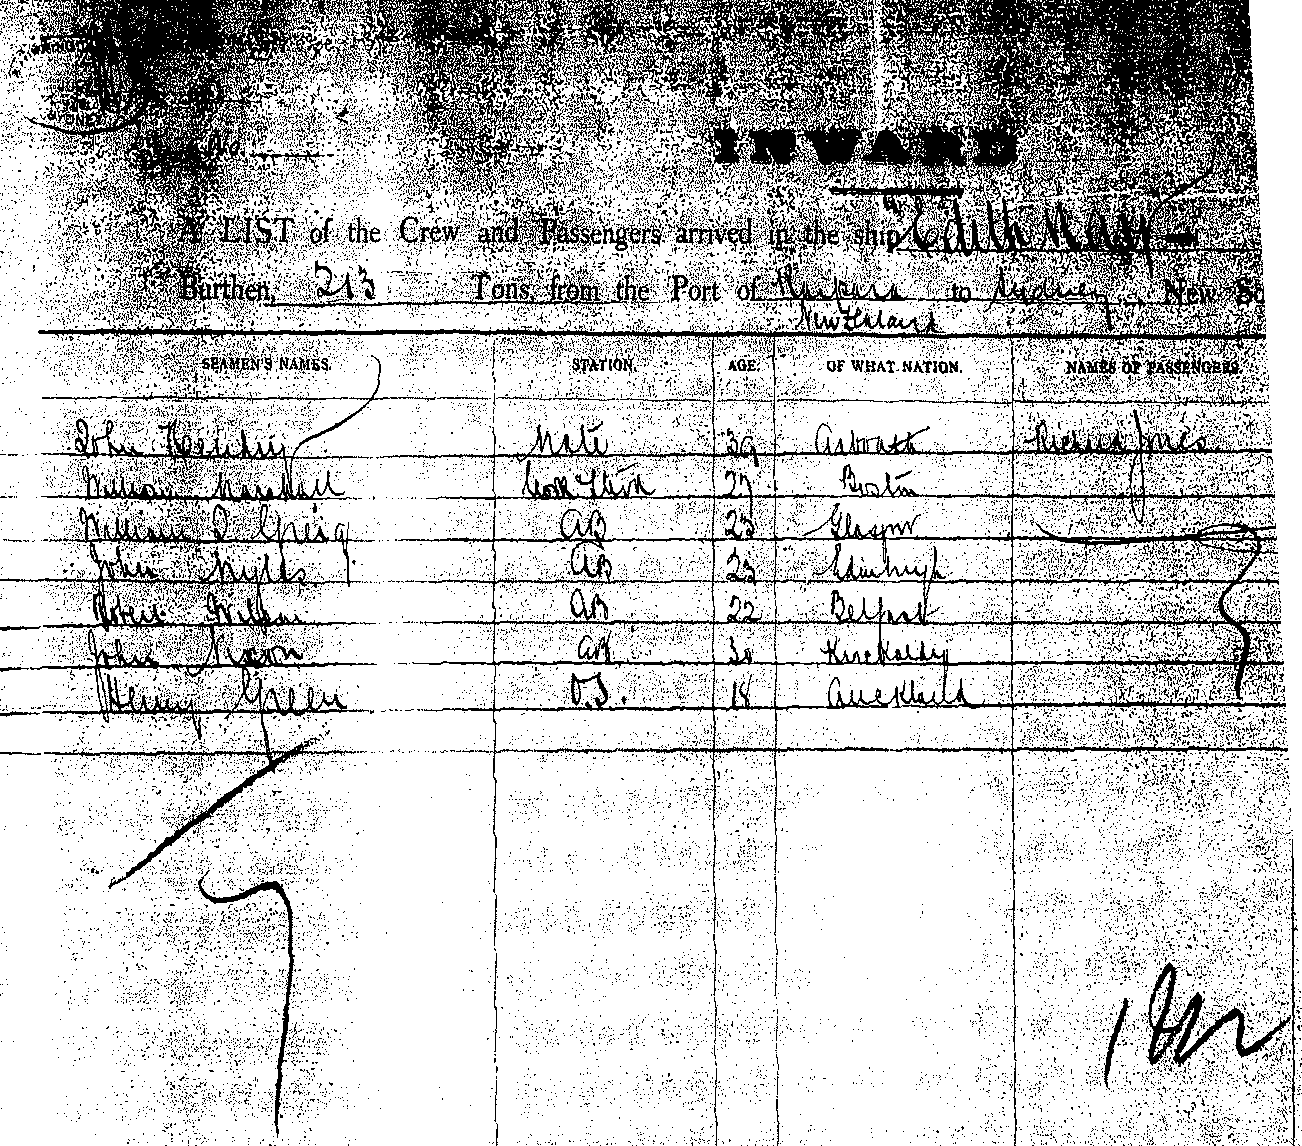 No
INWARD
A LIST of the Crew and Passengers arrived in the ship Edith May
Burthen, 213 Tons, from the Port of to Sydney, New So
New Zealand
SEAMEN'S NAMES. STATION. AGE. OF WHAT NATION. NAMES OF PASSENGERS.
John Mate 39 Richard Jones
William Marshall Cook 27 Boston
William Greig AB 23 Glasgow
John AB 23 Edinburgh
Robert Wilson AB 22 Belfast
John Nixon AB 30 Kirkcaldy
Henry Green O.S. 18 Auckland
7